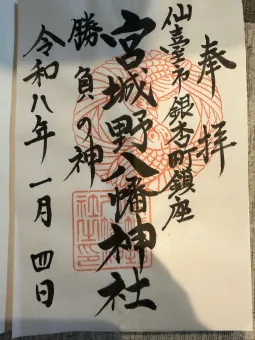 奉拝
仙臺市銀杏町鎮座
宮城野八幡神社
勝負の神
令和八年一月四日